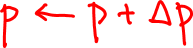 p ← p + Δp